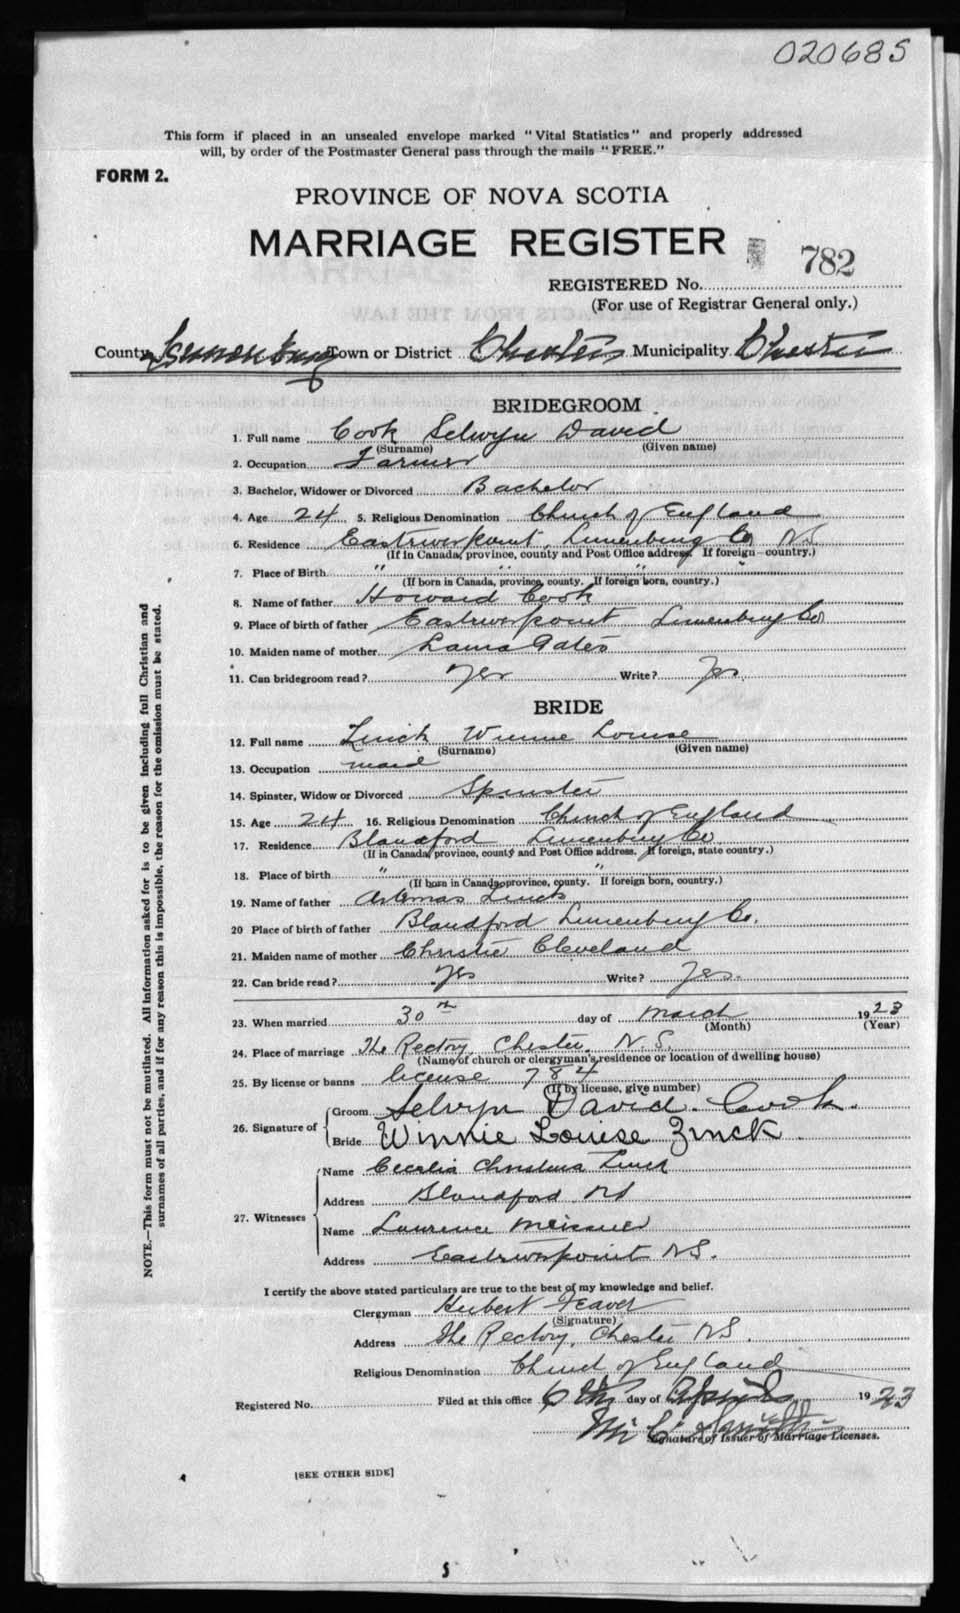 020685
This form if placed in an unsealed envelope marked "Vital Statistics" and properly addressed
will, by order of the Postmaster General pass through the mails "FREE."
FORM 2.
PROVINCE OF NOVA SCOTIA
MARRIAGE REGISTER
782
REGISTERED No.
(For use of Registrar General only.)
County Lunenburg Town or District Chester Municipality Chester
BRIDEGROOM
1. Full name Cook Selwyn David
(Surname) (Given name)
2. Occupation Farmer
3. Bachelor, Widower or Divorced Bachelor
4. Age 24 5. Religious Denomination Church of England
6. Residence Eastriverpoint, Lunenburg Co NS
(If in Canada, province, county and Post Office address. If foreign country.)
7. Place of Birth " " " "
(If born in Canada, province, county. If foreign born, country.)
8. Name of father Howard Cook
9. Place of birth of father Eastriverpoint Lunenburg Co
10. Maiden name of mother Gates
11. Can bridegroom read? Yes Write? Yes.
BRIDE
12. Full name Zinck Winnie Louise
(Surname) (Given name)
13. Occupation maid
14. Spinster, Widow or Divorced Spinster
15. Age 24 16. Religious Denomination Church of England
17. Residence Blandford Lunenburg Co
(If in Canada, province, county and Post Office address. If foreign, state country.)
18. Place of birth " "
(If born in Canada, province, county. If foreign born, country.)
19. Name of father Artemas Zinck
20 Place of birth of father Blandford Lunenburg Co.
21. Maiden name of mother Christie Cleveland
22. Can bride read? Yes Write? Yes.
23. When married 30th day of March 1923
(Month) (Year)
24. Place of marriage The Rectory, Chester, N.S.
(Name of church or clergyman's residence or location of dwelling house)
25. By license or banns license 784
(If by license, give number)
26. Signature of
Groom Selwyn David. Cook.
Bride Winnie Louise Zinck.
27. Witnesses
Name Cecelia Christena Zinck
Address Blandford NS
Name Laurence Meisner
Address Eastriverpoint NS.
I certify the above stated particulars are true to the best of my knowledge and belief.
Clergyman Hubert Feaver
(Signature)
Address The Rectory, Chester NS.
Religious Denomination Church of England
Registered No. Filed at this office 6th day of April 1923
Smith
Signature of Issuer of Marriage Licenses.
[SEE OTHER SIDE]
NOTE.—This form must not be mutilated. All information asked for is to be given including full Christian and
surnames of all parties, and if for any reason this is impossible, the reason for the omission must be stated.